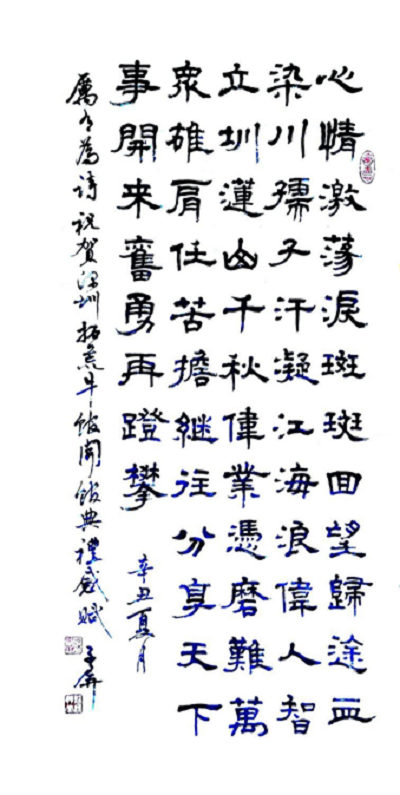 心情激蕩淚斑斑回望歸途血
染川孺子汗凝江海浪偉人智
立圳蓮山千秋偉業憑磨難萬
衆雄肩任苦擔繼往分享天下
事開来奮勇再蹬攀
辛丑夏月
厲有為詩祝賀深圳拓荒牛館開館典禮感賦
子屏